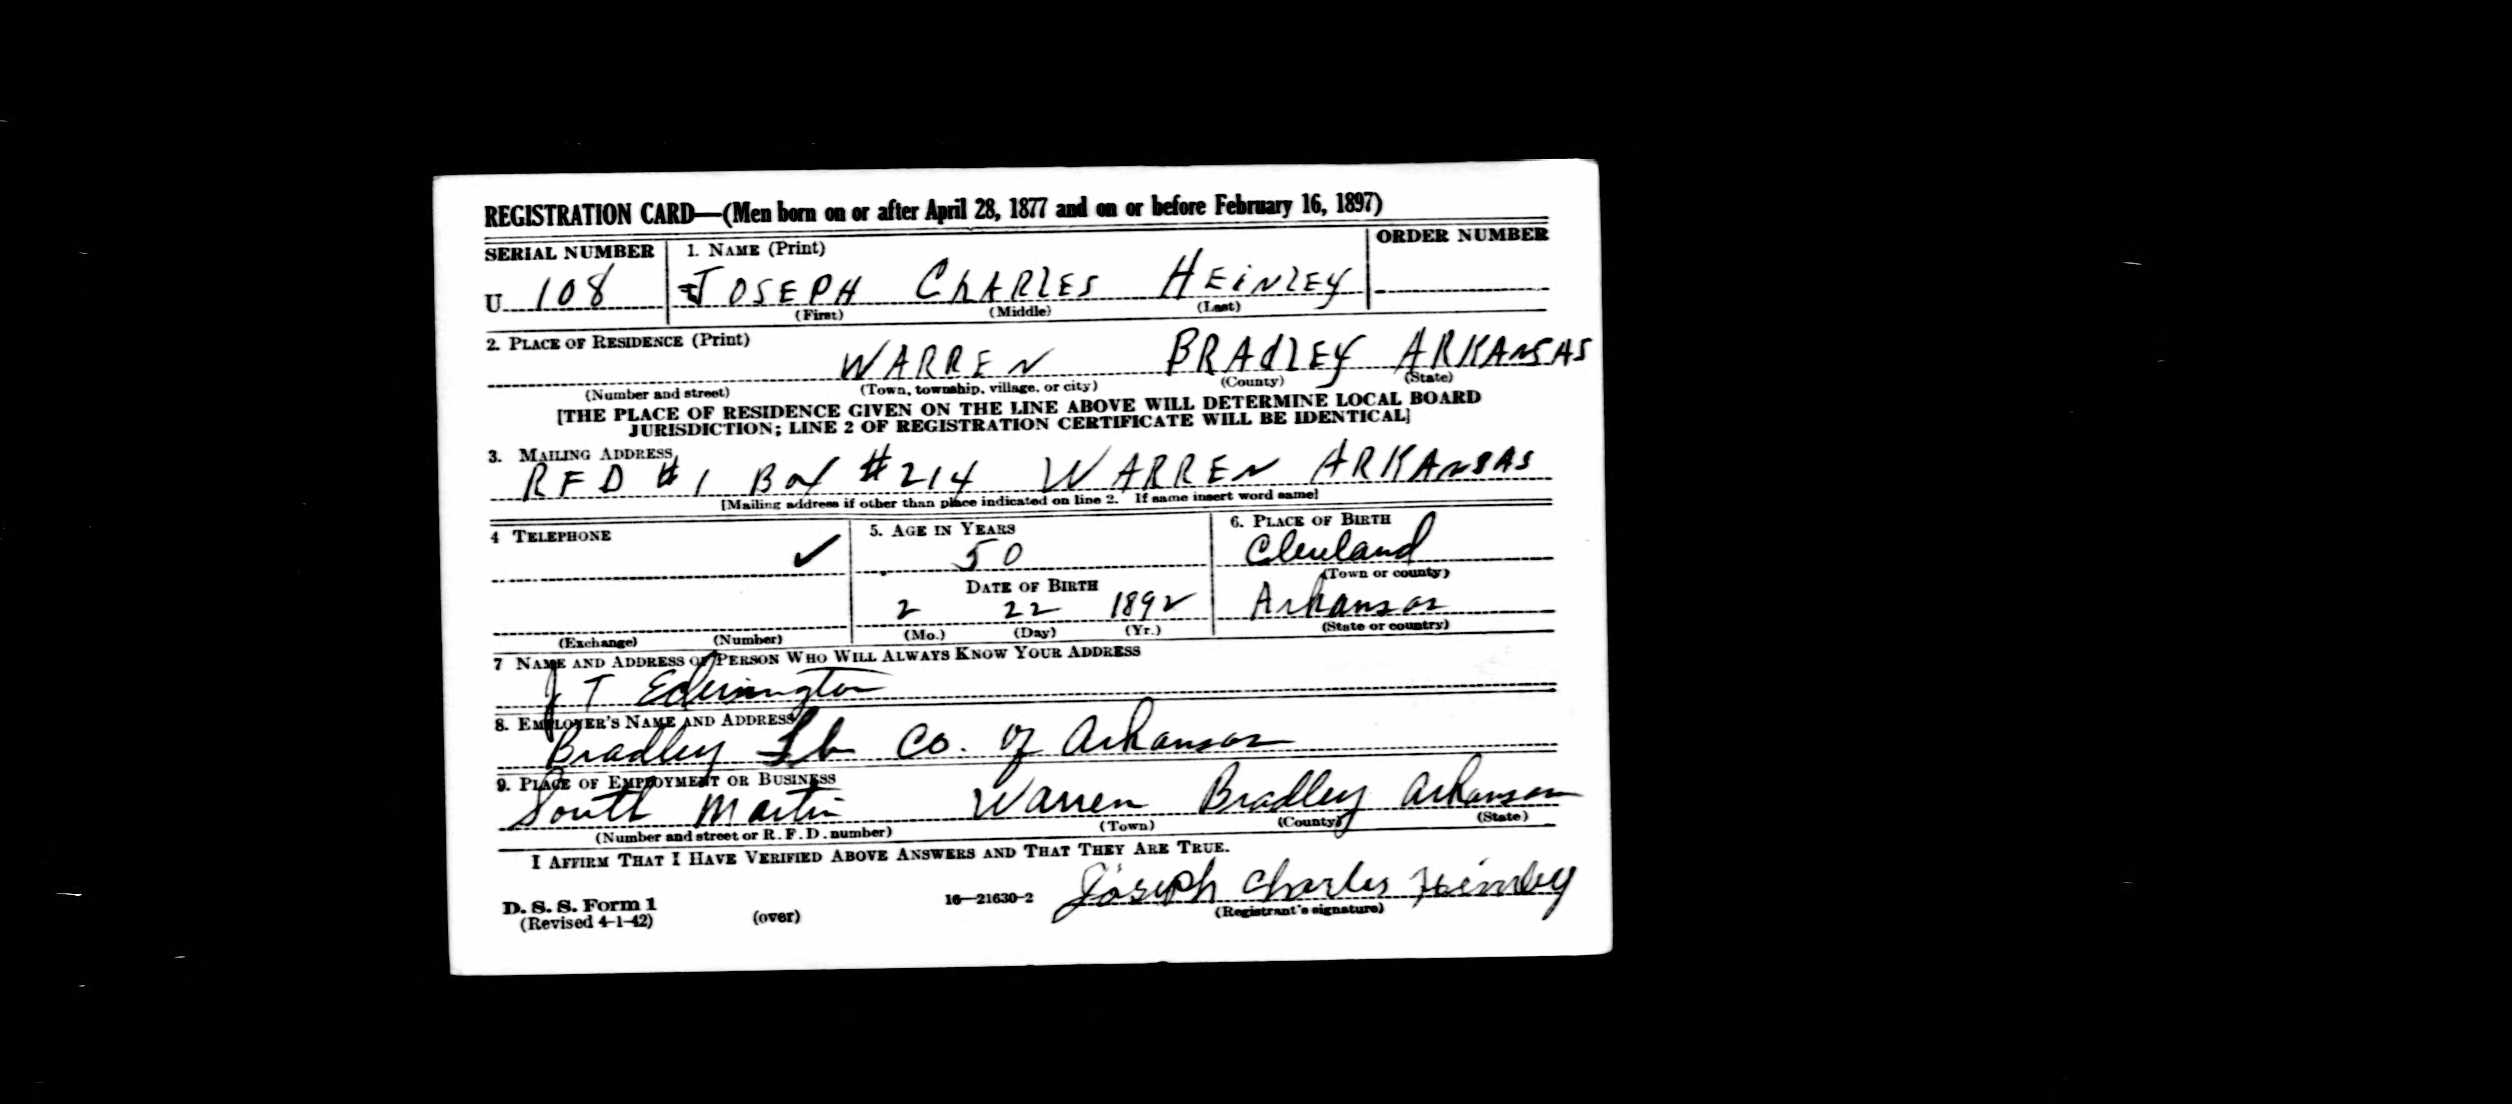 REGISTRATION CARD—(Men born on or after April 28, 1877 and on or before February 16, 1897)
SERIAL NUMBER 1. NAME (Print) ORDER NUMBER
U 108 JOSEPH CHARLES HEINLEY
(First) (Middle) (Last)
2. PLACE OF RESIDENCE (Print)
WARREN BRADLEY ARKANSAS
(Number and street) (Town, township, village, or city) (County) (State)
[THE PLACE OF RESIDENCE GIVEN ON THE LINE ABOVE WILL DETERMINE LOCAL BOARD
JURISDICTION; LINE 2 OF REGISTRATION CERTIFICATE WILL BE IDENTICAL]
3. MAILING ADDRESS
RFD #1 Box #214 WARREN ARKANSAS
[Mailing address if other than place indicated on line 2. If same insert word same]
4 TELEPHONE 5. AGE IN YEARS 6. PLACE OF BIRTH
✓ 50 Cleveland
(Town or county)
DATE OF BIRTH
2 22 1892 Arkansas
(Exchange) (Number) (Mo.) (Day) (Yr.) (State or country)
7 NAME AND ADDRESS OF PERSON WHO WILL ALWAYS KNOW YOUR ADDRESS
J T Ederington
8. EMPLOYER'S NAME AND ADDRESS
Bradley Lb Co. of Arkansas
9. PLACE OF EMPLOYMENT OR BUSINESS
South Martin Warren Bradley Arkansas
(Number and street or R. F. D. number) (Town) (County) (State)
I AFFIRM THAT I HAVE VERIFIED ABOVE ANSWERS AND THAT THEY ARE TRUE.
Joseph Charles Heinley
D. S. S. Form 1 16—21630-2 (Registrant's signature)
(Revised 4-1-42) (over)